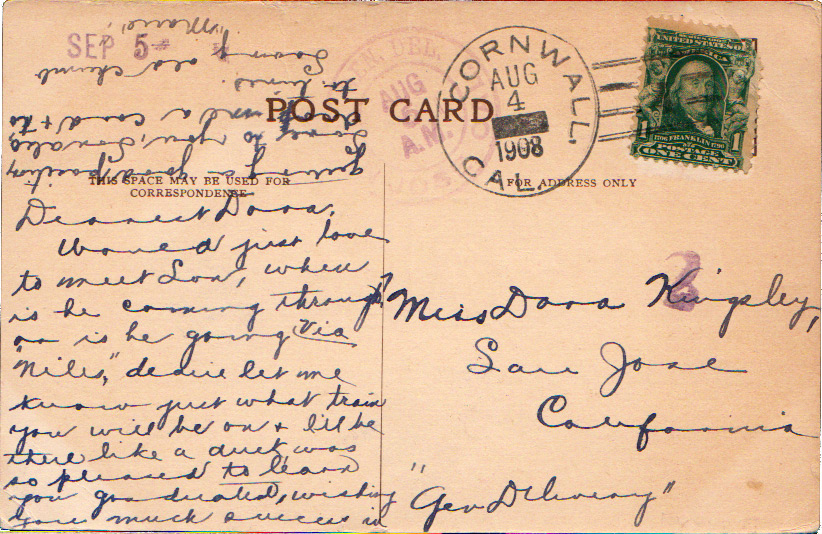 SEP 5
POST CARD
THIS SPACE MAY BE USED FOR
CORRESPONDENCE
FOR ADDRESS ONLY
CORNWALL.
AUG
4
1908
CAL.
GEN. DEL.
AUG
A.M.
UNITED STATES OF
1706 FRANKLIN 1790
1
POSTAGE
ONE CENT
Dearest Dora,
Would just love
to meet Lou, when
is he coming through?
or is he going via
"Niles," dearie let me
know just what train
you will be on + I'll be
there like a duck, was
so pleased to learn
you graduated, wishing
you much success in
a good position
love to you,
send a card +
old chum
"Marie"
Miss Dora Kingsley,
San Jose
California
"Gen Delivery"
2